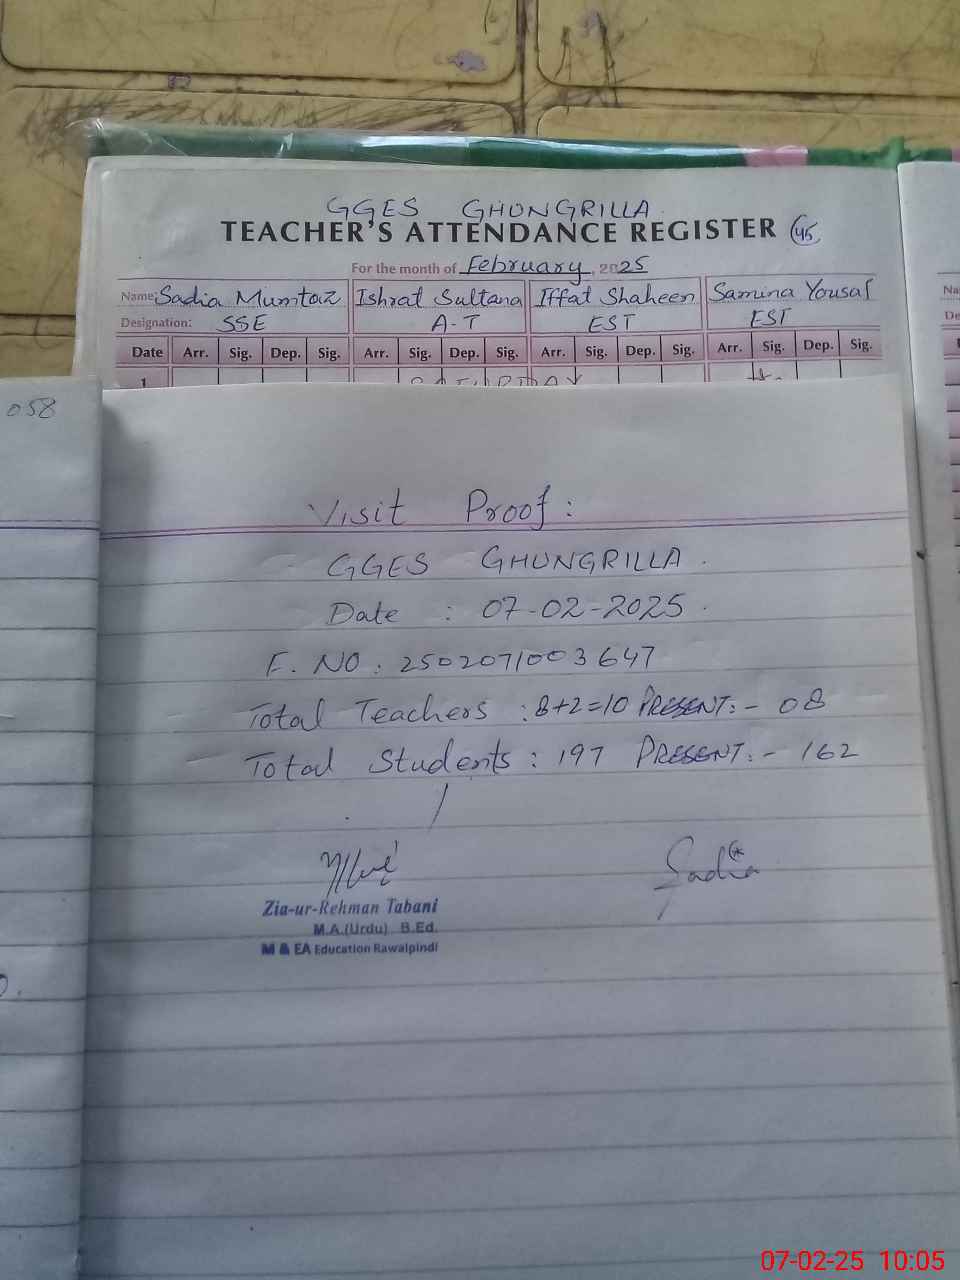 GGES GHUNGRILLA.
TEACHER'S ATTENDANCE REGISTER 45
For the month of February, 2025
Name: Sadia Mumtaz Ishrat Sultana Iffat Shaheen Samina Yousaf
Designation: SSE A-T EST EST
Date Arr. Sig. Dep. Sig. Arr. Sig. Dep. Sig. Arr. Sig. Dep. Sig. Arr. Sig. Dep. Sig.
1 SATURDAY
058
Visit Proof:
GGES GHUNGRILLA.
Date : 07-02-2025.
F. NO: 2502071003647
Total Teachers : 8+2=10 PRESENT:- 08
Total Students : 197 PRESENT:- 162
Sadia
Zia-ur-Rehman Tabani
M.A.(Urdu) B.Ed.
M & EA Education Rawalpindi
07-02-25 10:05